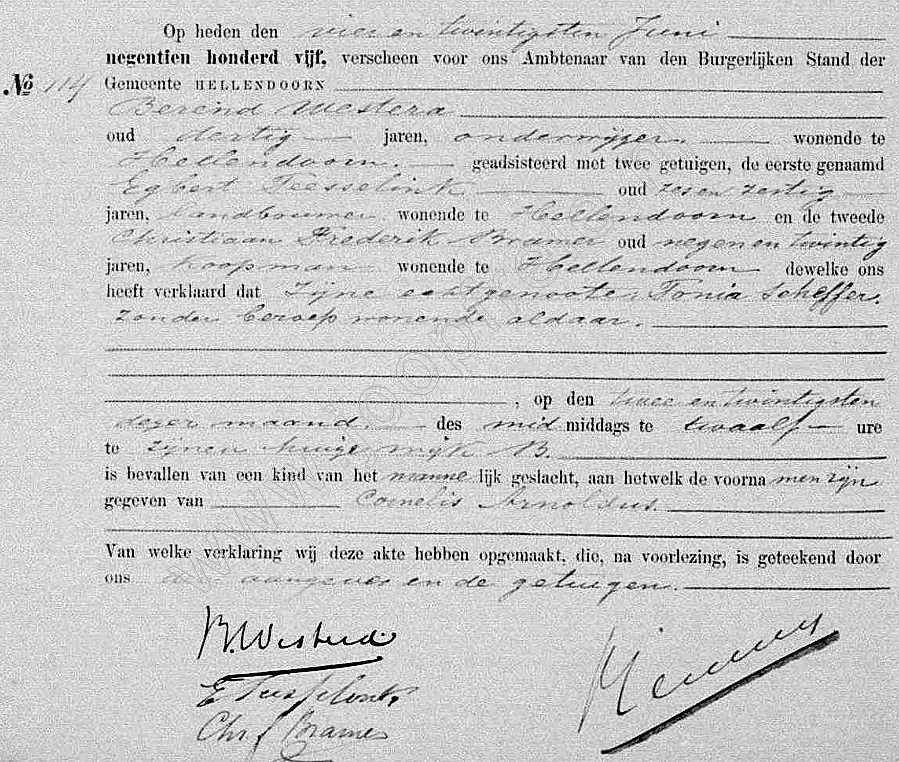 Op heden den vier en twintigsten Juni
negentien honderd vijf, verscheen voor ons Ambtenaar van den Burgerlijken Stand der
№ 114 Gemeente HELLENDOORN
Berend Westera
oud dertig jaren, onderwijzer. wonende te
Hellendoorn. geadsisteerd met twee getuigen, de eerste genaamd
Egbert Teesselink oud zes en zertig
jaren, landbouwer wonende te Hellendoorn en de tweede
Christiaan Frederik Bramer oud negen en twintig
jaren, koopman wonende te Hellendoorn dewelke ons
heeft verklaard dat Zijne echtgenoote Tonia Scheffer.
zonder beroep wonende aldaar.
, op den twee en twintigsten
dezer maand. des mid middags te twaalf ure
te zijnen huize wijk B.
is bevallen van een kind van het manne lijk geslacht, aan hetwelk de voorna men zijn
gegeven van Cornelis Arnoldus.
Van welke verklaring wij deze akte hebben opgemaakt, die, na voorlezing, is geteekend door
ons den aangever en de getuigen.
B. Westera
E Teesselink
Chr F Bramer